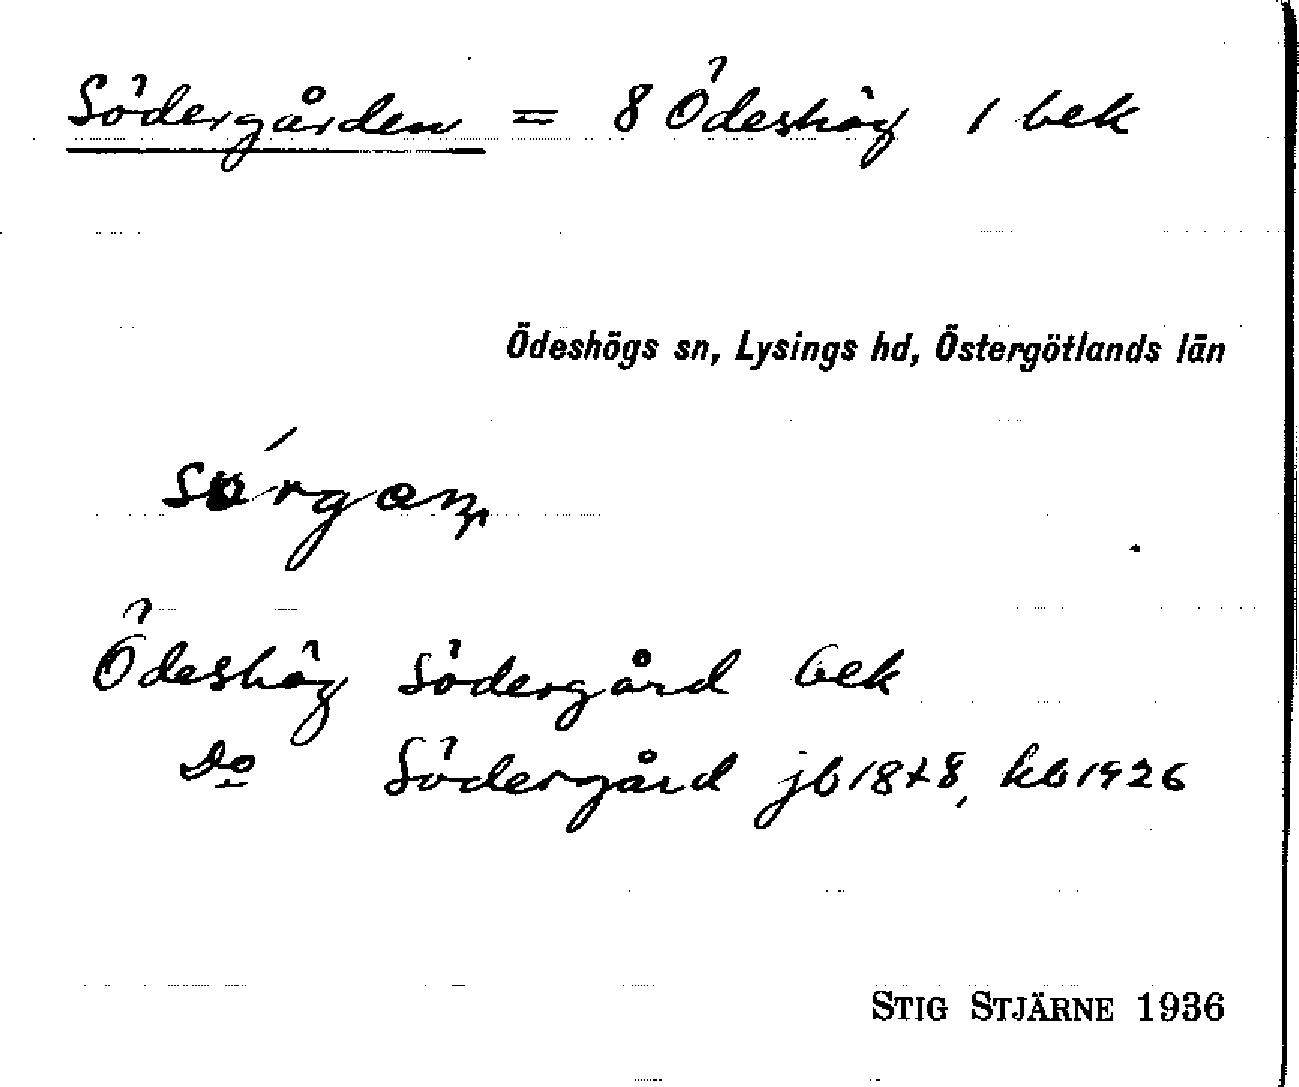 Södergården = 8 Ödeshög 1 bek
Ödeshögs sn, Lysings hd, Östergötlands län
Ödeshög Södergård bek
Do Södergård jb 1878, kb 1926
STIG STJÄRNE 1936